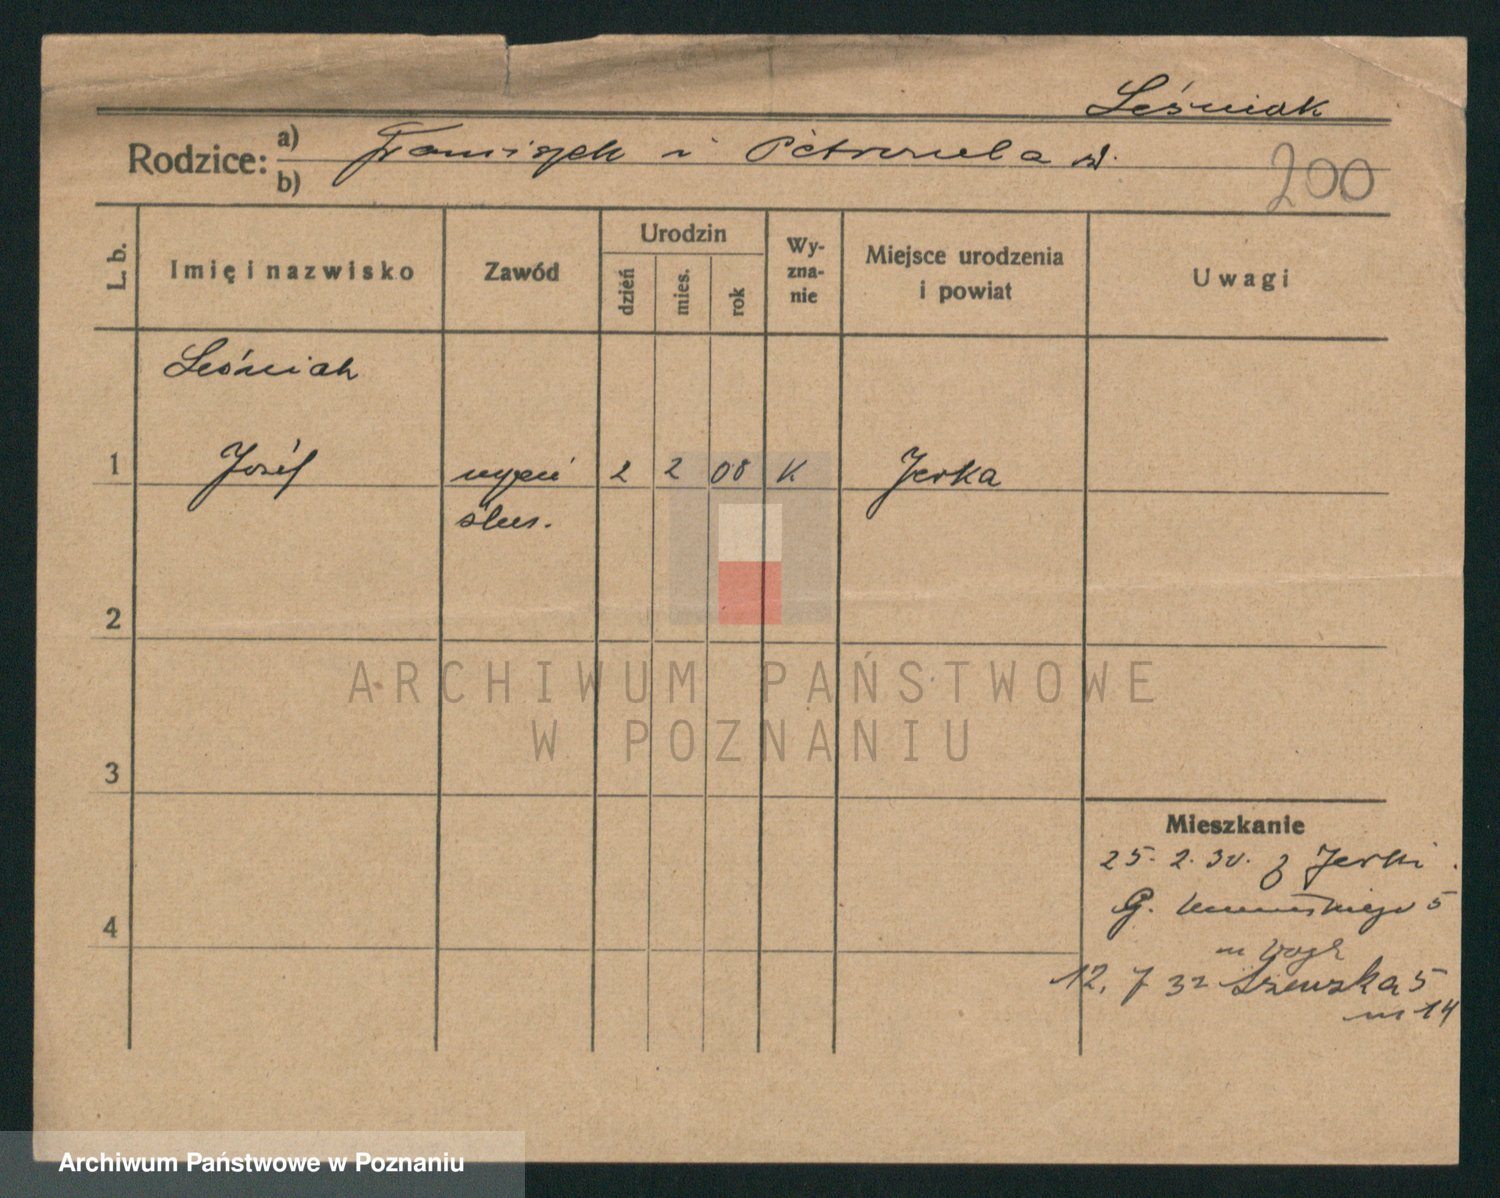 Leśniak
Rodzice: a) Franciszek i Petronela
b)
200
L. b.
Imię i nazwisko
Zawód
Urodzin
dzień
mies.
rok
Wy-
zna-
nie
Miejsce urodzenia
i powiat
Uwagi
Leśniak
1 Józef 2 2 08 K Jerka
ślus.
2
3
4
Mieszkanie
25. 2. 30. z Jerki
G. 5
12. 7 32 Szewska 5
m 14
ARCHIWUM PAŃSTWOWE
W POZNANIU
Archiwum Państwowe w Poznaniu